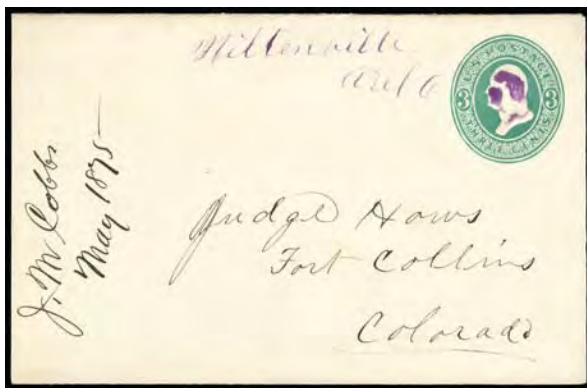 Wittenville
U.S. POSTAGE
3 3
THREE CENTS
J. M Cobbs
May 1875
Judge Haws
Fort Collins
Colorado